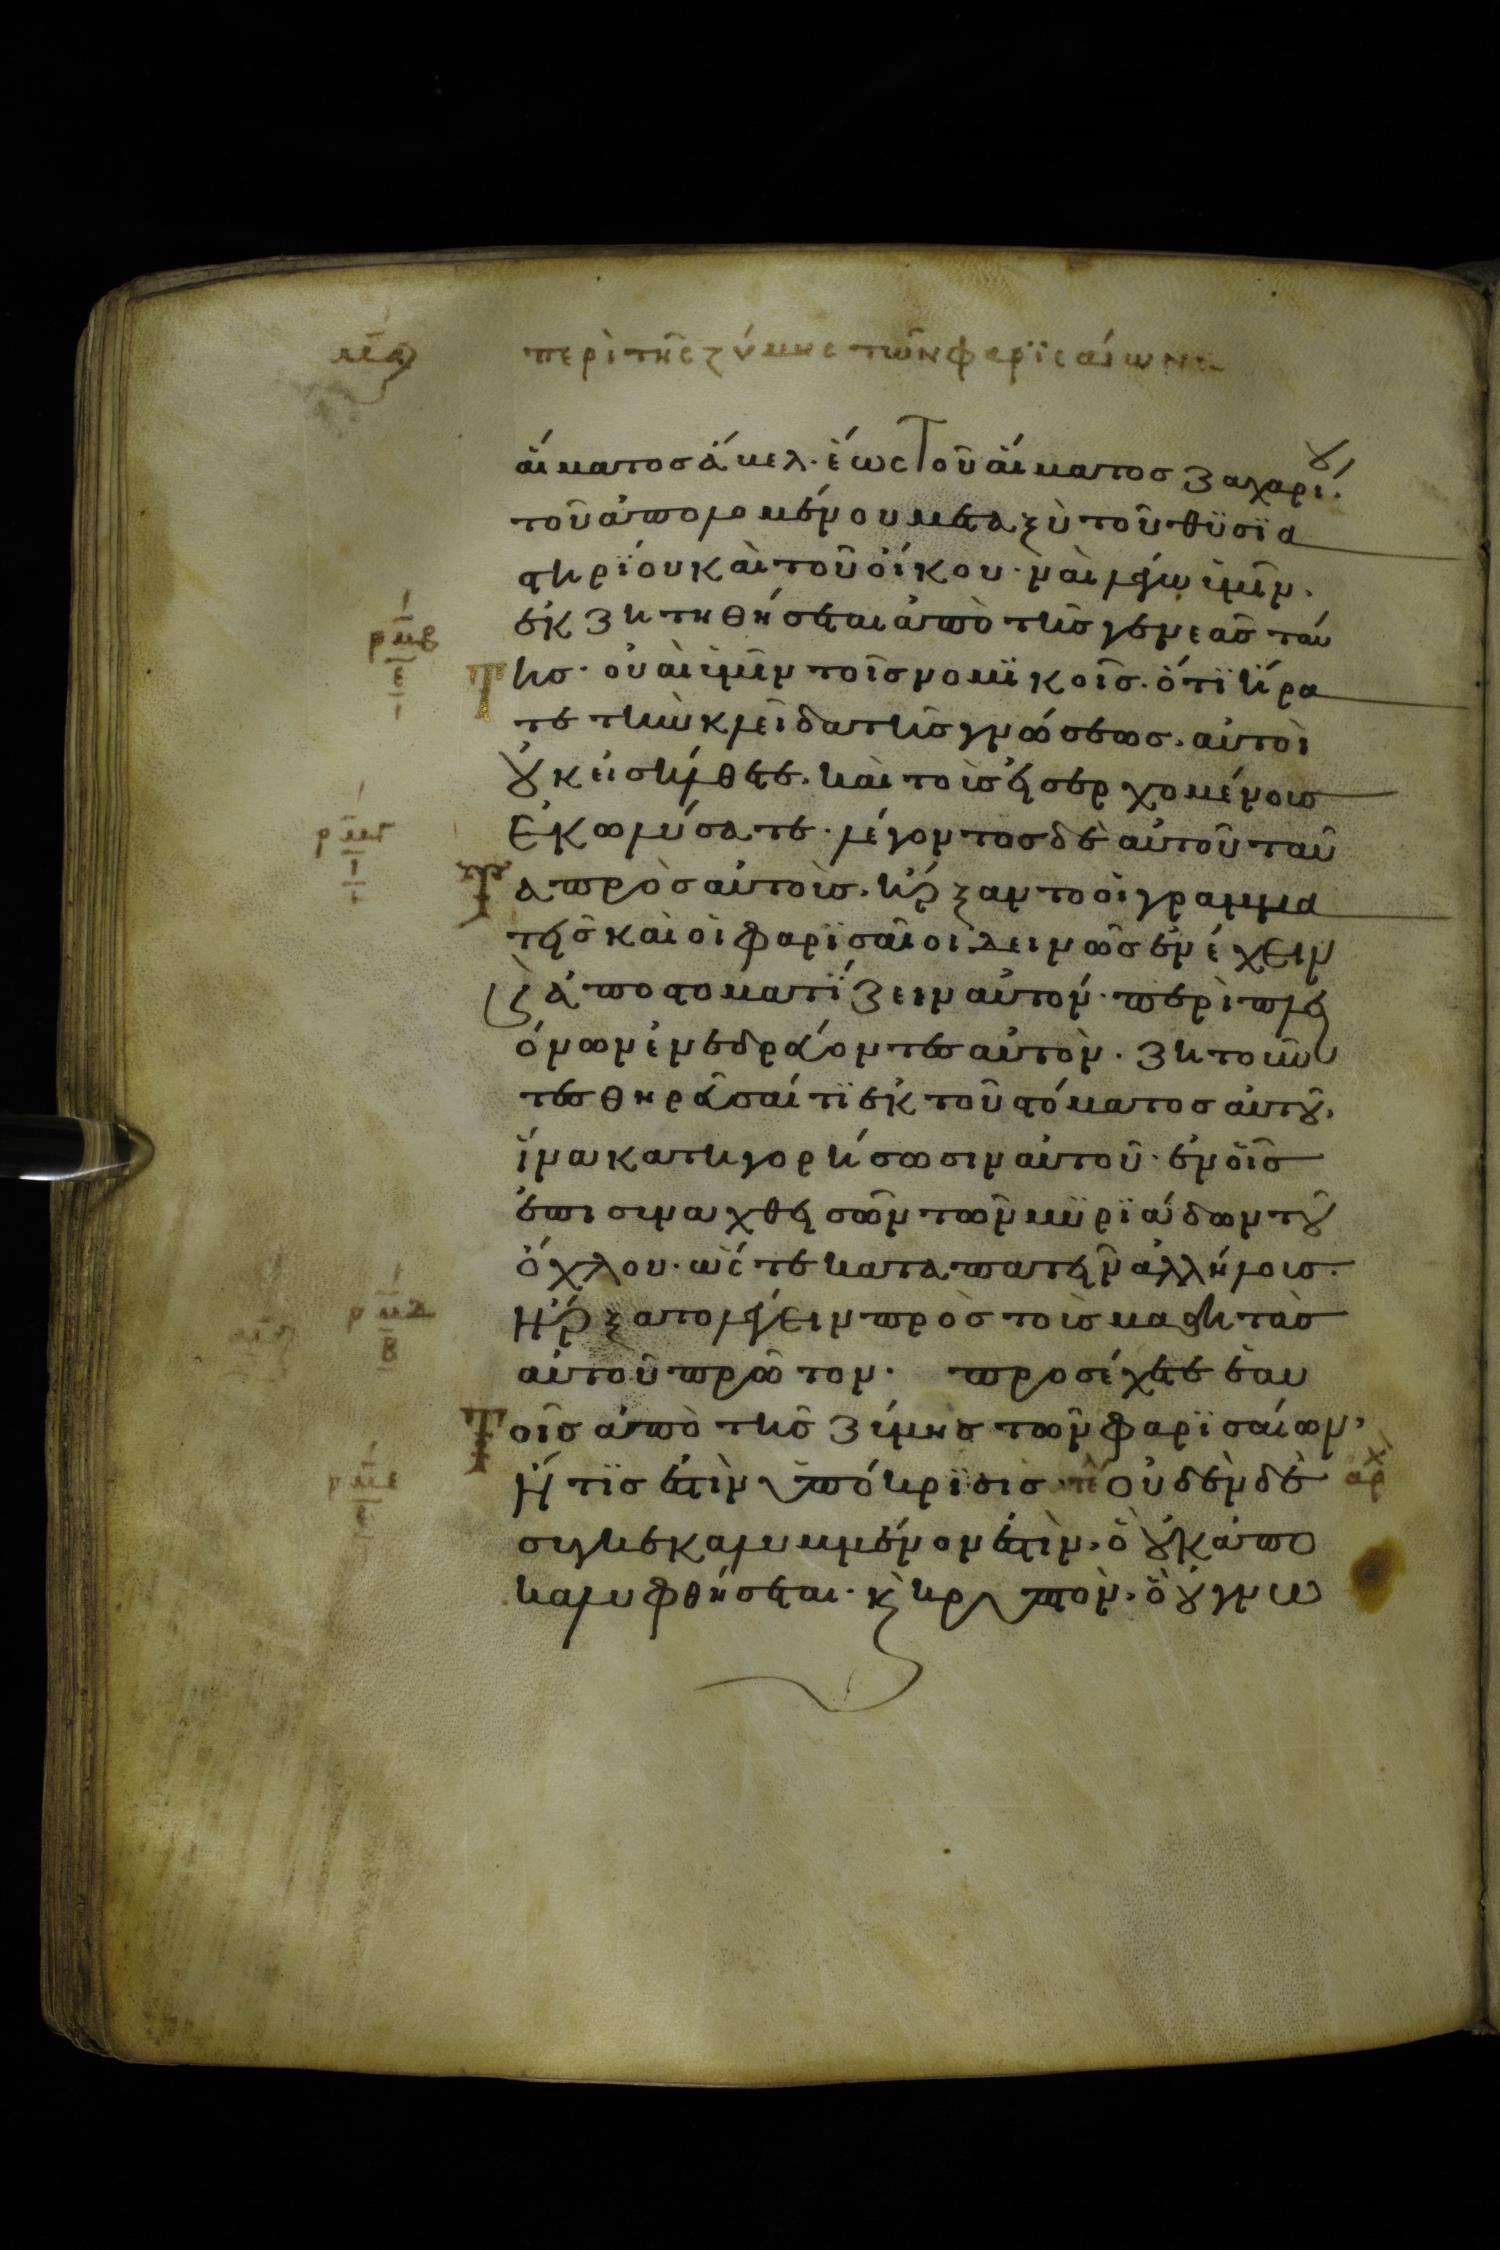 περὶ τῆς ζύμης τῶν φαρϊσαίων
αἵματος ἄβελ· ἕως τοῦ αἵματος ζαχαρίου·
τοῦ ἀπολομένου μεταξὺ τοῦ θϋσϊα
στηρΐου καὶ τοῦ οἴκου· ναὶ λέγω ὑμῖν·
ἐκζητηθήσεται ἀπὸ τῆς γενεᾶς ταύ
της· οὐαὶ ὑμῖν τοῖς νομϊκοῖς· ὅτϊ ἤρα
τε τὴν κλεῖδα τῆς γνώσεως· αὐτοὶ
οὐκ εἰσήλθετε· καὶ τοὺς εἰσερχομένους
ἐκωλύσατε· λέγοντος δὲ αὐτοῦ ταῦ
τα πρὸς αὐτοὺς· ἤρξαντο οἱ γραμμα
τεῖς καὶ οἱ φαρϊσαῖοι δεινῶς ἐνέχειν
κ̀ ἀποστοματΐζειν αὐτόν· περὶ πλει
όνων ἐνεδρεύοντες αὐτὸν· ζητοῦν
τες θηρεῦσαί τϊ ἐκ τοῦ στόματος αὐτοῦ·
ἵνα κατηγορήσωσιν αὐτοῦ· ἐν οἷς
ἐπισυναχθεισῶν τῶν μϋρϊάδων τοῦ
ὄχλου· ὥστε καταπατεῖν ἀλλήλους·
ἤρξατο λέγειν πρὸς τοὺς μαθητὰς
αὐτοῦ πρῶτον· προσέχετε ἑαυ
τοῖς ἀπὸ τῆς ζύμης τῶν φαρϊσαίων·
ἥτϊς ἐστὶν ὑπόκρϊσις· οὐδὲν δὲ
συγκεκαλυμμένον ἐστὶν· ὃ οὐκ ἀπο
καλυφθήσεται· κ̀ κρυπτὸν· ὃ οὐ γνω
ρμβ
ρμγ
ρμδ
β
ρμε
ἀρχ